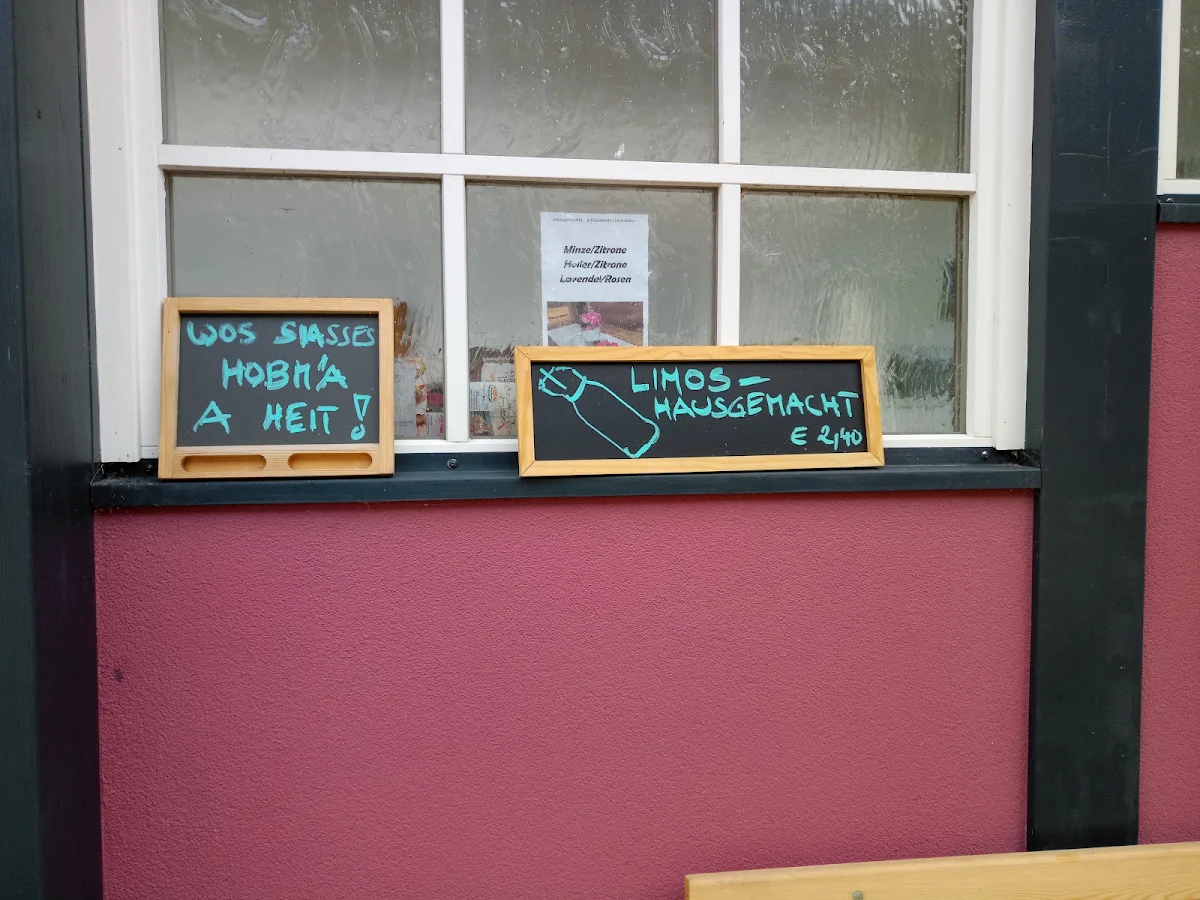 WOS SIASSES
HOBM'A
A HEIT!
Minze/Zitrone
Holler/Zitrone
Lavendel/Rosen
LIMOS-
HAUSGEMACHT
€ 2,40